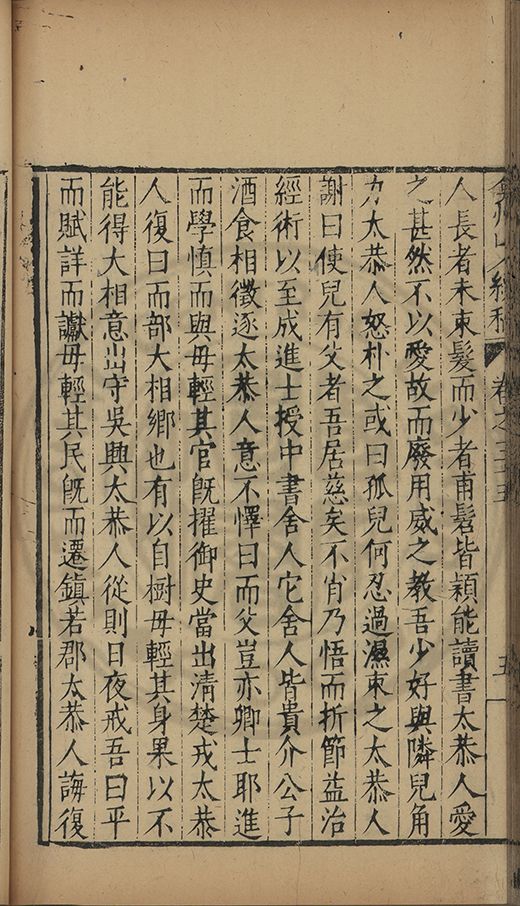 弇州山人續稿 卷之三十五 五
人長者未束髮而少者甫髫皆穎能讀書太恭人愛
之甚然不以愛故而廢用威之教吾少好與隣兒角
力太恭人怒朴之或曰孤兒何忍過濕束之太恭人
謝曰使兒有父者吾居慈矣不肖乃悟而折節益治
經術以至成進士授中書舍人它舍人皆貴介公子
酒食相徵逐太恭人意不懌曰而父豈亦卿士耶進
而學慎而與毋輕其官旣擢御史當出清楚戎太恭
人復曰而部大相鄉也有以自樹毋輕其身果以不
能得大相意出守吳興太恭人從則日夜戒吾曰平
而賦詳而讞毋輕其民旣而遷鎮若郡太恭人誨復